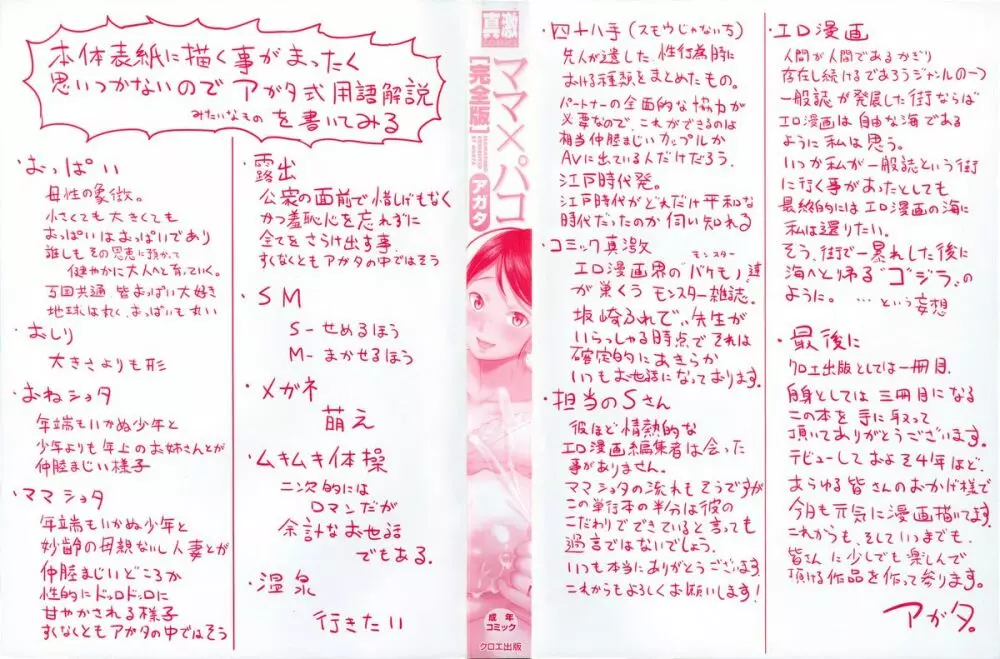 本体表紙に描く事がまったく
思いつかないので アガタ式用語解説
みたいなもの を書いてみる
・おっぱい
母性の象徴。
小さくても大きくても
おっぱいはおっぱいであり
誰しもその恩恵に預かって
健やかに大人へと育っていく。
万国共通、皆おっぱい大好き
地球は丸く、おっぱいも丸い
・おしり
大きさよりも形
・おねショタ
年端もいかぬ少年と
少年よりも年上のお姉さんとが
仲睦まじい様子
・ママショタ
年端もいかぬ少年と
妙齢の母親ないし人妻とが
仲睦まじいどころか
性的にドロドロに
甘やかされる様子
すくなくともアガタの中ではそう
・露出
公衆の面前で惜しげもなく
かつ羞恥心を忘れずに
全てをさらけ出す事
すくなくともアガタの中ではそう
・SM
S-せめるほう
M-まかせるほう
・メガネ
萌え
・ムキムキ体操
二次的には
ロマンだが
余計なお世話
でもある。
・温泉
行きたい
真激
ママ×パコ
[完全版]
アガタ
成年
コミック
クロエ出版
・四十八手(スモウじゃないち)
先人が遺した、性行為時に
おける種類をまとめたもの。
パートナーの全面的な協力が
必要なので、これができるのは
相当仲睦まじいカップルか
AVに出ている人だけだろう。
江戸時代発。
江戸時代がどれだけ平和な
時代だったのか伺い知れる
・コミック真激
モンスター
エロ漫画界のバケモノ達
が巣くうモンスター雑誌。
坂崎ふれでぃ先生が
いらっしゃる時点でそれは
確定的にあきらか
いつもお世話になっております。
・担当のSさん
彼ほど情熱的な
エロ漫画編集者は会った
事がありません。
ママショタの流れもそうですが
この単行本の半分は彼の
こだわりでできていると言っても
過言ではないでしょう。
いつも本当にありがとうございます
これからもよろしくお願いします!
・エロ漫画
人間が人間であるかぎり
存在し続けるであろうジャンルの一つ
一般誌が発展した街ならば
エロ漫画は自由な海である
ように私は思う。
いつか私が一般誌という街
に行く事があったとしても
最終的にはエロ漫画の海に
私は還りたい。
そう、街で一暴れした後に
海へと帰る"ゴジラ"の
ように。…という妄想
・最後に
クロエ出版としては一冊目、
自身としては三冊目になる
この本を手に取って
頂いてありがとうございます。
デビューしておよそ4年ほど、
あらゆる皆さんのおかげ様で
今日も元気に漫画描いてます
これからも、そしていつまでも、
皆さんに少しでも楽しんで
頂ける作品を作って参ります。
アガタ。